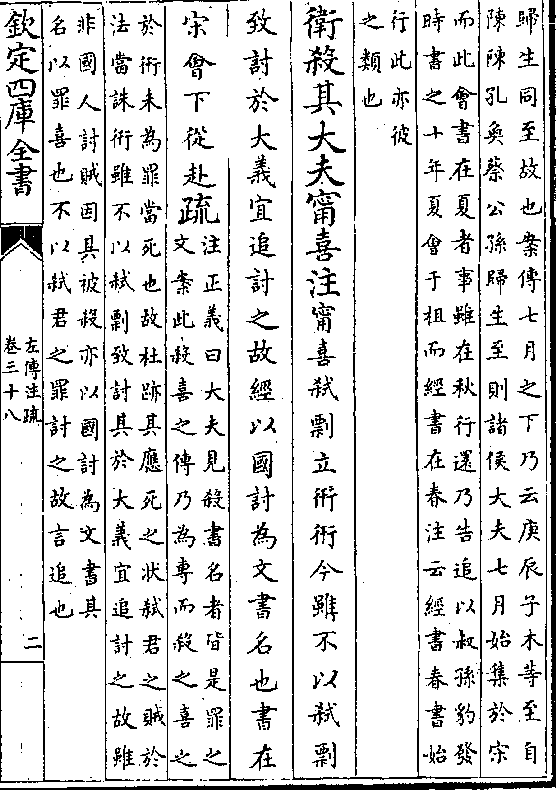 歸生同至故也案傳七月之下乃云庚辰子木等至自
陳陳孔奐蔡公孫歸生至則諸侯大夫七月始集於宋
而此會書在夏者事雖在秋行還乃告追以叔孫豹發
時書之十年夏會于柤而經書在春注云經書春書始
行此亦彼
之類也
衛殺其大夫甯喜注甯喜弑剽立衎衎今雖不以弑剽
致討於大義宜追討之故經以國討為文書名也書在
宋會下從赴疏注正義曰大夫見殺書名者皆是罪之
文案此殺喜之傳乃為專而殺之喜之
於衎未為罪當死也故杜跡其應死之狀弑君之賊於
法當誅衎雖不以弑剽致討其於大義宜追討之故雖
非國人討賊因其被殺亦以國討為文書其
名以罪喜也不以弑君之罪討之故言追也
欽定四庫全書
左傳注疏
卷三十八
二